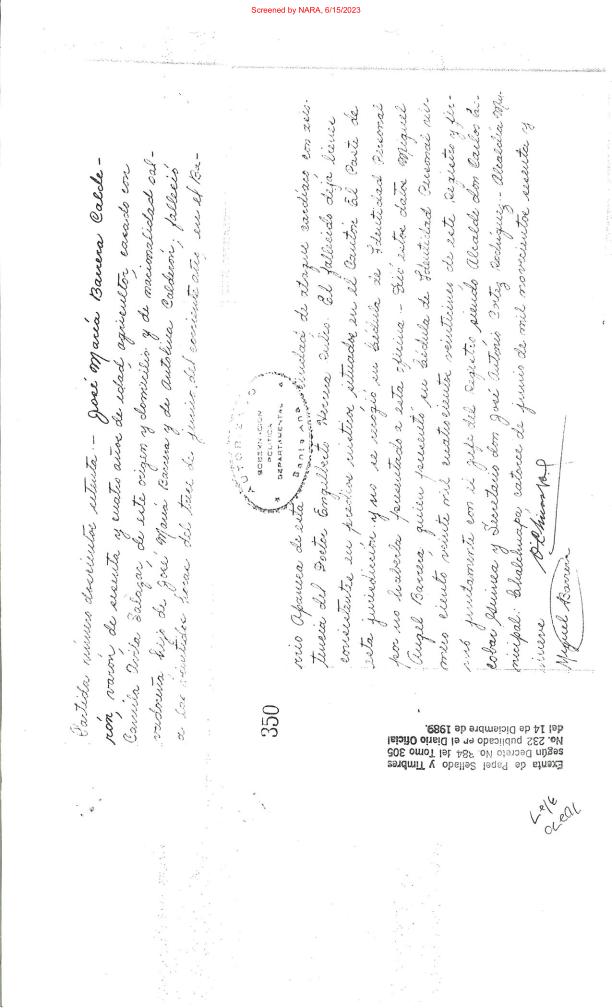 Screened by NARA, 6/15/2023
Partida número doscientos setenta.- José María Barrera Calde-
rón, varón de sesenta y cuatro años de edad, agricultor, casado con
Camila Avila Salazar, de este origen y domicilio y de nacionalidad sal-
vadoreña hijo de José María Barrera y de Antolina Calderón; falleció
a las horas del trece de junio del corriente año, en el Ba-
rrio Apaneca de esta ciudad de ataque cardíaco con asis-
tencia del Doctor Engilberto Herrera Aviles. El fallecido deja bienes
consistentes en predios rústicos situados en el Cantón El Paste de
esta jurisdicción y no se recogió su Cédula de Identidad Personal
por no haberla presentado a esta oficina - Dio estos datos Miguel
Angel Barrera quien presentó su Cédula de Identidad Personal nú-
mero ciento veinte mil cuatrocientos veintiunos de este Registro y fir-
mó juntamente con el Jefe del Registro siendo Alcalde don Carlos Es-
cobar y Secretario don José Antonio Cortez Rodríguez - Alcaldía Mu-
nicipal: Chalchuapa catorce de junio de mil novecientos sesenta y
nueve
Miguel Barrera
GOBERNACION
POLITICA
DEPARTAMENTAL
Santa Ana
350
Exenta de Papel Sellado y Timbres
según Decreto No. 384 del Tomo 305
No. 232 publicado en el Diario Oficial
del 14 de Diciembre de 1989.